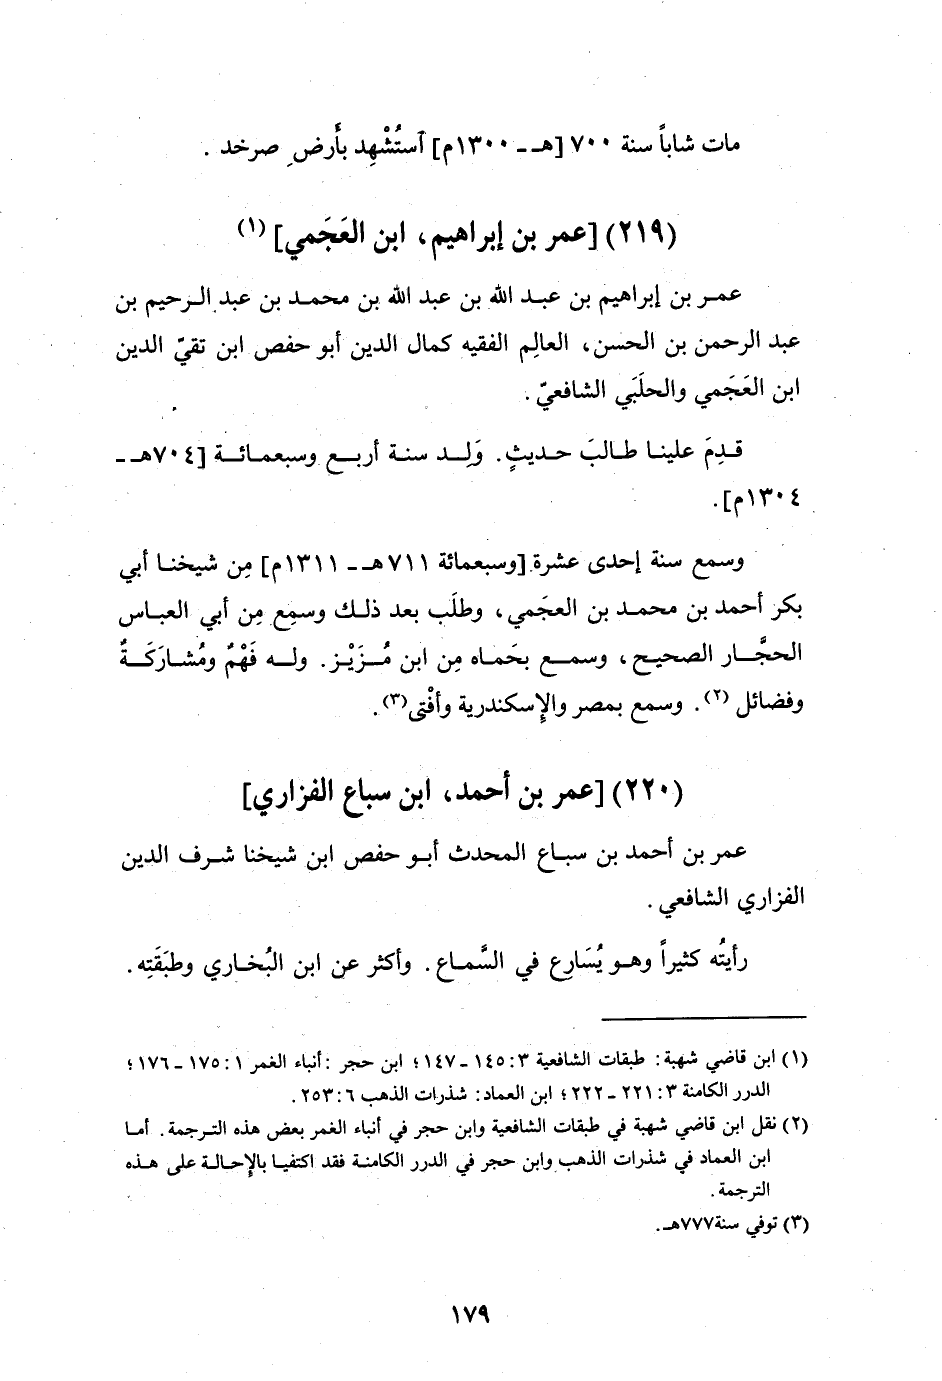 مات شاباً سنة ٧٠٠ [هـ - ١٣٠٠م] آستُشْهِد بأَرضِ صرخد .
(٢١٩) [عمر بن إبراهيم، ابن العَجَمي] (١)
عمـر بن إبراهيم بن عبـد الله بن عبد الله بن محمـد بن عبد الـرحيم بن
عبد الرحمن بن الحسن، العالِم الفقيه كمال الدين أبو حفص ابن تقيّ الدين
ابن العَجَمي والحلَبَي الشافعيّ .
قـدِمَ علينـا طـالبَ حـديثٍ. وَلِـد سنـة أربـع وسبعمـائـة [٧٠٤هـ -
١٣٠٤م].
وسمع سنة إحدى عشرة [وسبعمائة ٧١١هـ - ١٣١١م] مِن شيخنـا أبي
بكر أحمد بن محمـد بن العجَمي، وطلَب بعد ذلـك وسمِع مِن أبي العبـاس
الحجَّـار الصحيـح، وسمـع بحَمـاه مِن ابن مُـزَيْـز. ولـه فَهْمٌ ومُشـارَكَـةٌ
وفضائل (٢). وسمع بمصر والإسكندرية وأفْتى(٣).
(٢٢٠) [عمر بن أحمد، ابن سباع الفزاري]
عمر بن أحمد بن سبـاع المحدث أبـو حفص ابن شيخنا شـرف الدين
الفزاري الشافعي .
رأيتُه كثيراً وهـو يُسَارِع في السَّمـاع. وأكثر عن ابن البُخـاري وطبَقَتِه.
(١) ابن قاضي شهبة: طبقات الشافعية ٣: ١٤٥ - ١٤٧؛ ابن حجر :أنباء الغمر ١: ١٧٥ - ١٧٦؛
الدرر الكامنة ٣: ٢٢١ - ٢٢٢؛ ابن العماد: شذرات الذهب ٦: ٢٥٣.
(٢) نقل ابن قاضي شهبة في طبقات الشافعية وابن حجر في أنباء الغمر بعض هذه التـرجمة. أمـا
ابن العماد في شذرات الذهب وابن حجر في الدرر الكامنـة فقد اكتفيـا بالإحـالـة على هـذه
الترجمة.
(٣) توفي سنة٧٧٧هـ.
١٧٩